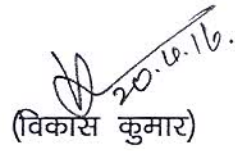 20.4.16.
(विकास कुमार)